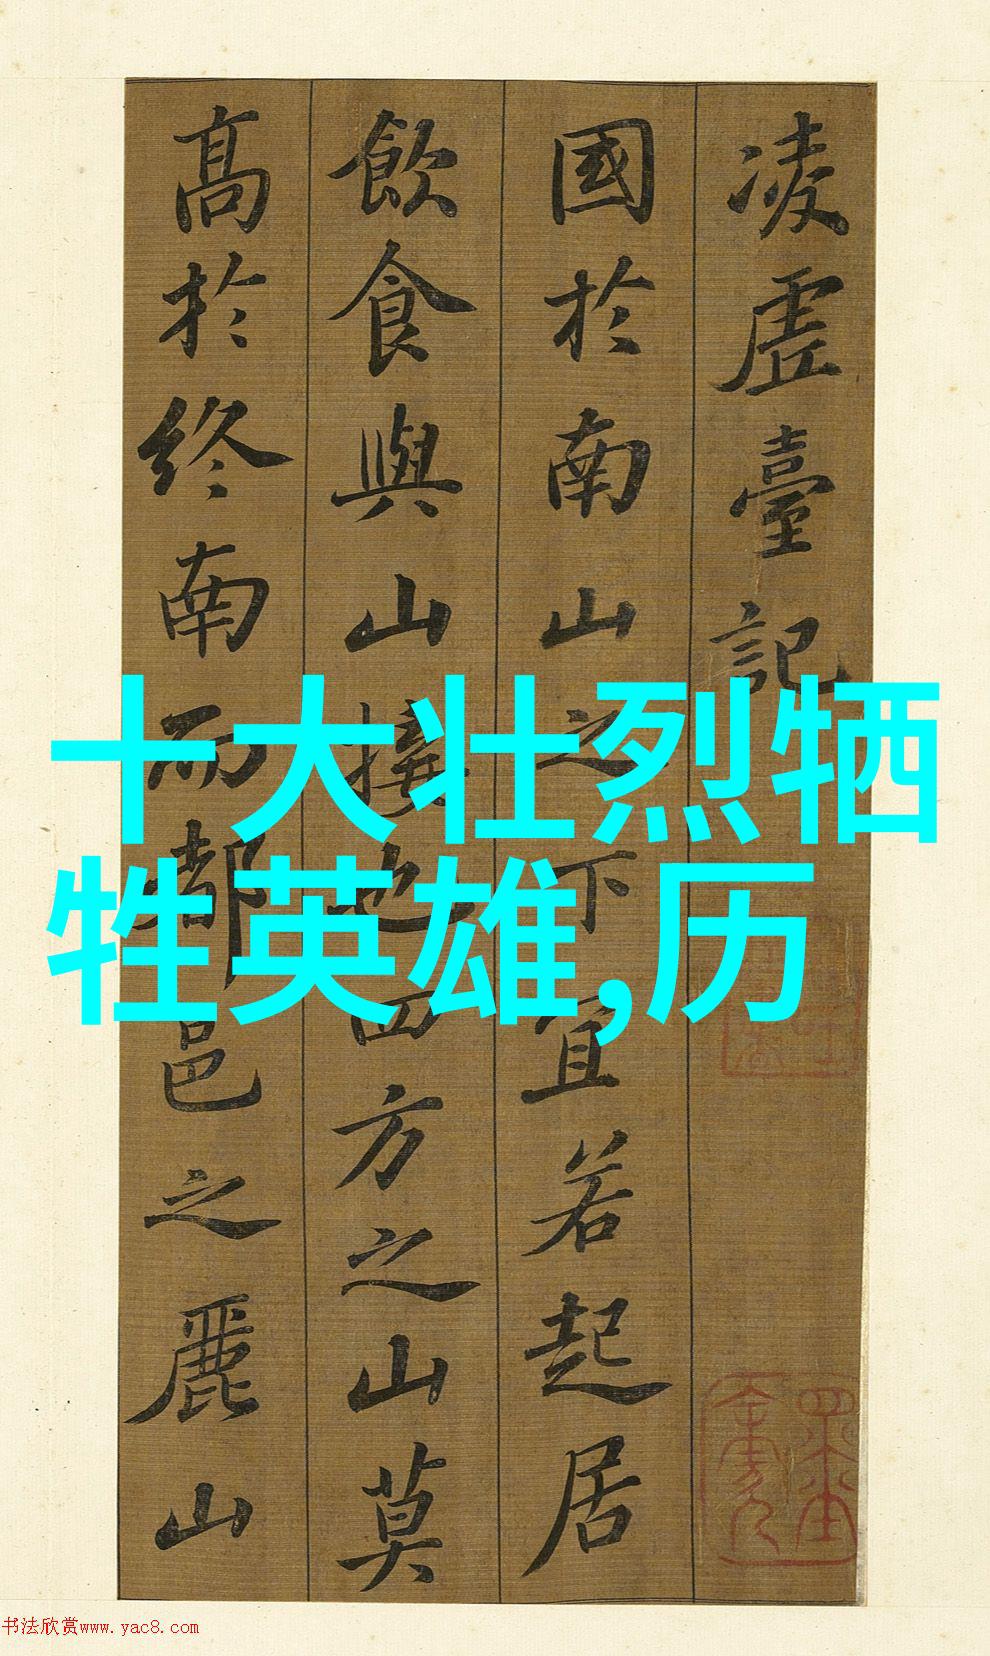 凌虛臺記
國於南山之下宜若起居
飲食與山接也四方之山莫
高於終南而都邑之麗山
十大壮烈牺
牲英雄,历
书法欣赏www.yac8.com